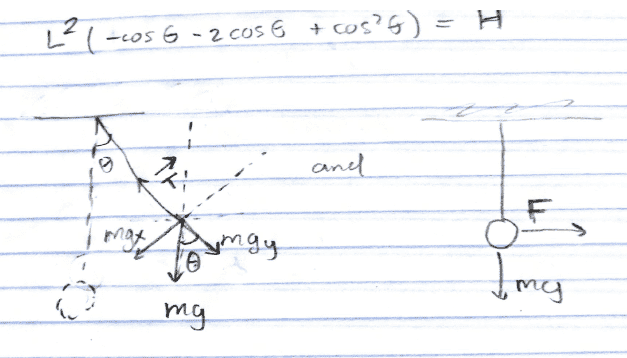 L² (-cosθ - 2cosθ + cos²θ) = H
θ
T
and
F
mgx
mgy
θ
mg
mg